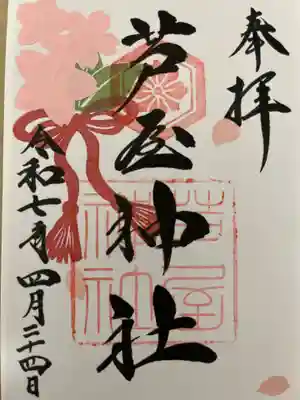 奉拝
芦屋神社
芦屋神社
令和七年四月二十四日